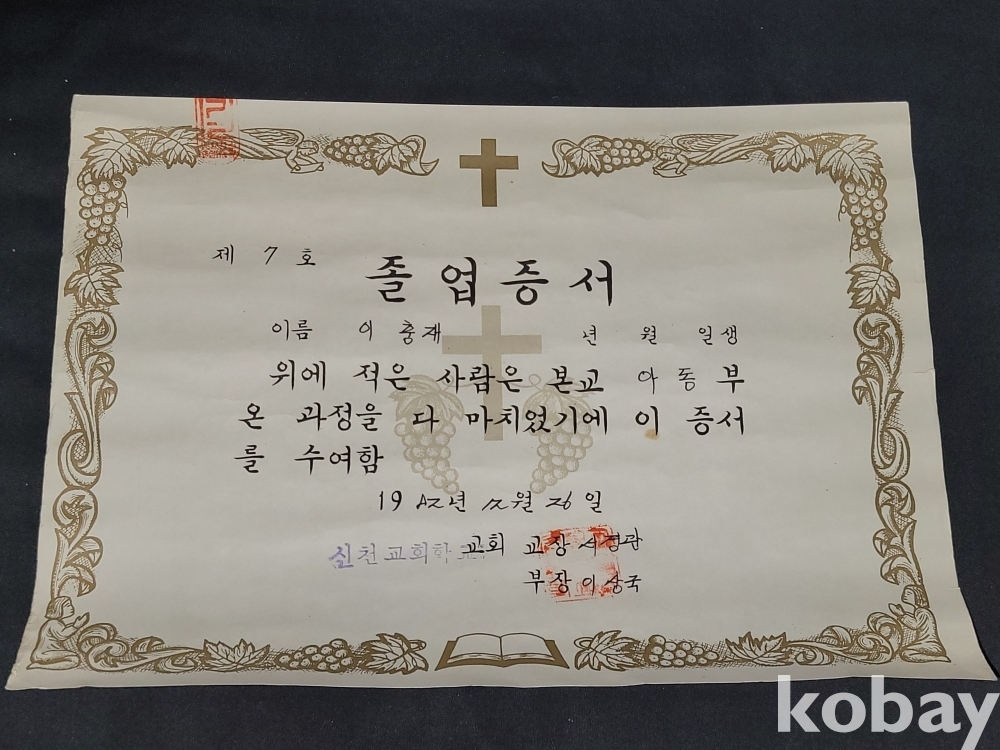 제 7 호
졸업증서
이름 이충재 년 월 일생
위에 적은 사람은 본교 아동부
온 과정을 다 마치었기에 이 증서
를 수여함
1982년 12월 26일
신천교회학교 교회 교장 서경관
부장 이상국
kobay